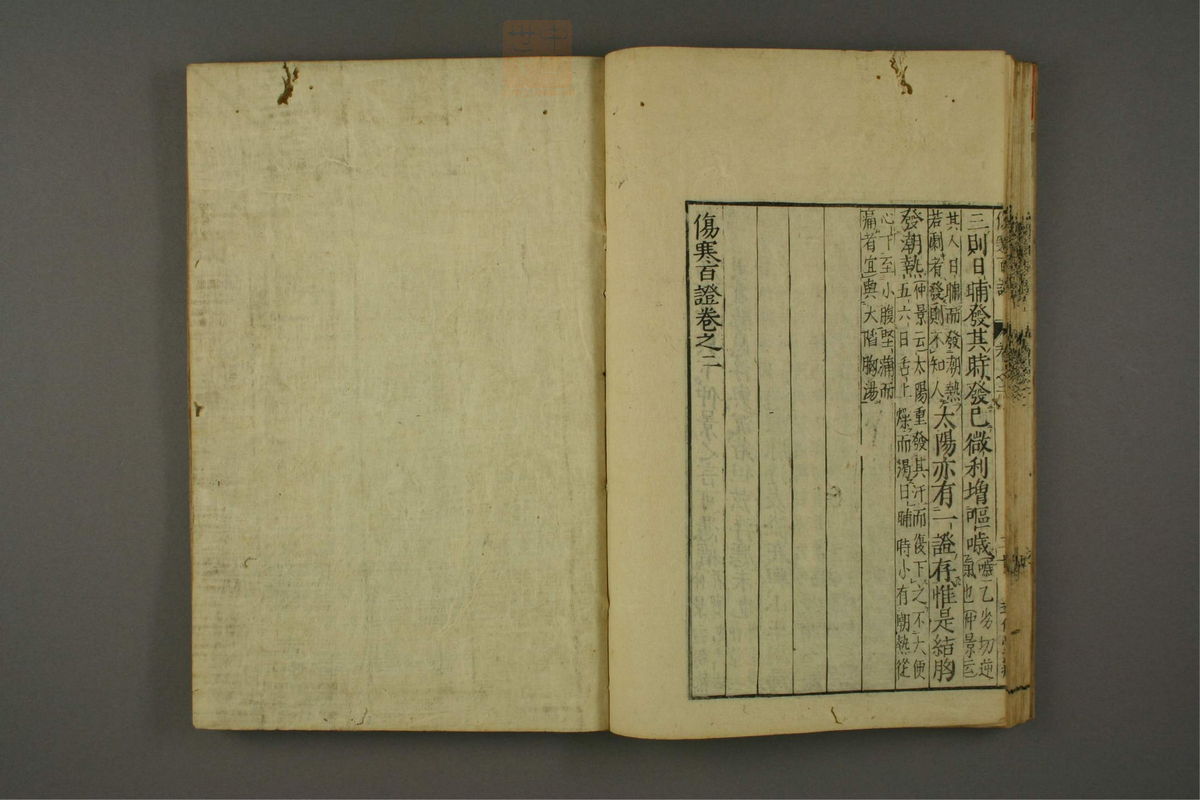 三則日晡發其時發已微利增嘔噦噦乙劣切逆
氣也仲景云
其人日晡而發潮熱
若劇者發則不知人太陽亦有一證存惟是結胸
發潮熱仲景云太陽重發其汗而復下之不大便
五六日舌上燥而渴日晡時小有潮熱從
心下至小腹堅滿而
痛者宜與大陷胸湯
傷寒百證卷之二